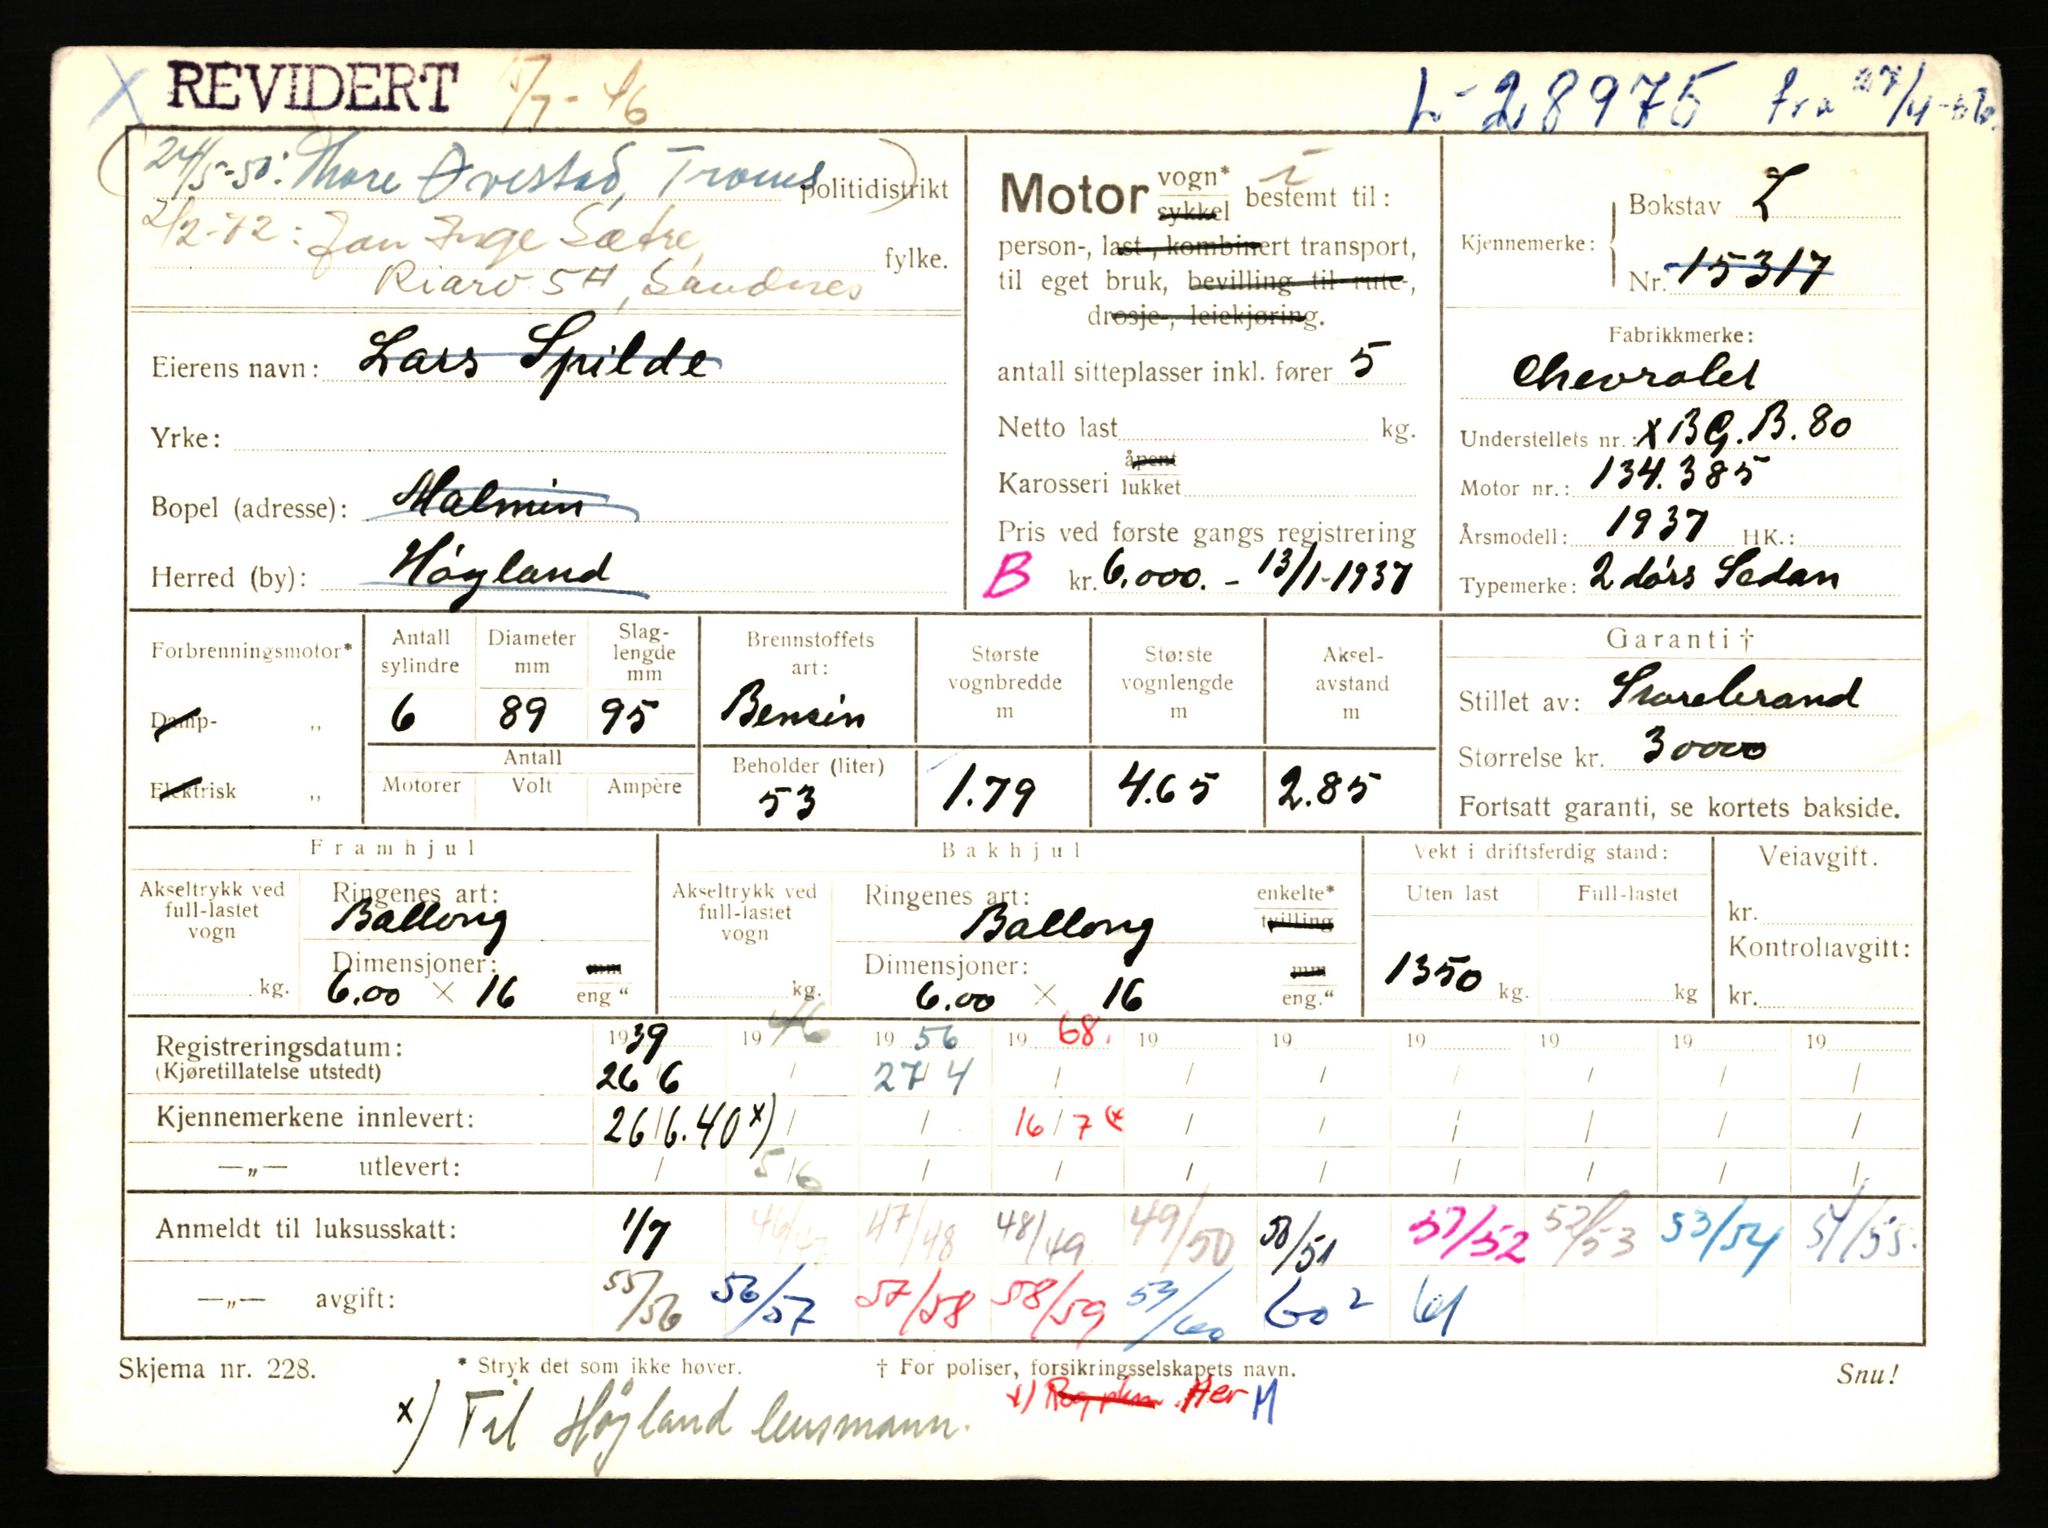 X REVIDERT 1/7-46 L-28975 fra 27/4-56
(24/5-50: Thore Øvestad, Troms) politidistrikt
2/2-72: Jan Inge Sætre, fylke.
54, Sandnes
Eierens navn: Lars Spilde
Yrke:
Bopel (adresse): Malmin
Herred (by): Høgland
Motor vogn* sykkel bestemt til:
person-, last-, kombinert transport,
til eget bruk, bevilling til rute-,
drosje-, leiekjøring.
antall sitteplasser inkl. fører 5
Netto last kg.
Karosseri åpent lukket
Pris ved første gangs registrering
B kr. 6.000.- 13/1-1937
Kjennemerke: Bokstav L
Nr. 15317
Fabrikkmerke:
Chevrolet
Understellets nr.: xBG.B.80
Motor nr.: 134.385
Årsmodell: 1937 HK.:
Typemerke: 2 dørs Sedan
Forbrenningsmotor*
Damp- „
Elektrisk „
Antall sylindre Diameter mm Slag-lengde mm
6 89 95
Antall
Motorer Volt Ampère
Brennstoffets art:
Bensin
Beholder (liter)
53
Største vognbredde m
1.79
Største vognlengde m
4.65
Aksel-avstand m
2.85
Garanti †
Stillet av: Storebrand
Størrelse kr. 30000
Fortsatt garanti, se kortets bakside.
Framhjul
Akseltrykk ved full-lastet vogn kg.
Ringenes art:
Ballong
Dimensjoner: mm
6.00 × 16 eng "
Bakhjul
Akseltrykk ved full-lastet vogn kg.
Ringenes art: enkelte*
Ballong tvilling
Dimensjoner: mm
6.00 × 16 eng."
Vekt i driftsferdig stand:
Uten last Full-lastet
1350 kg. kg
Veiavgift.
kr.
Kontrollavgift:
kr.
Registreringsdatum: 1939 1946 1956 1968. 19 19 19 19 19 19
(Kjøretillatelse utstedt) 26/6 / 27/4 / / / / / / /
Kjennemerkene innlevert: 26/6.40 x) / / 16/7 / / / / / /
—„— utlevert: / 5/6 / / / / / / / /
Anmeldt til luksusskatt: 1/7 46/47 47/48 48/49 49/50 50/51 51/52 52/53 53/54 54/55.
—„— avgift: 55/56 56/57 57/58 58/59 59/60 60² 61
Skjema nr. 228. * Stryk det som ikke høver. † For poliser, forsikringsselskapets navn. Snu!
x) Til Høgland lensmann. x) Her M